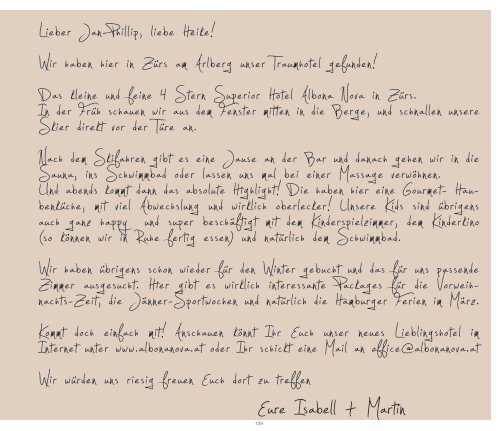 Lieber Jan-Phillip, liebe Heike!
Wir haben hier in Zürs am Arlberg unser Traumhotel gefunden!
Das kleine und feine 4 Stern Superior Hotel Albona Nova in Zürs.
In der Früh schauen wir aus dem Fenster mitten in die Berge, und schnallen unsere
Skier direkt vor der Türe an.
Nach dem Skifahren gibt es eine Jause an der Bar und danach gehen wir in die
Sauna, ins Schwimmbad oder lassen uns mal bei einer Massage verwöhnen.
Und abends kommt dann das absolute Highlight! Die haben hier eine Gourmet- Hau-
benküche, mit viel Abwechslung und wirklich oberlecker! Unsere Kids sind übrigens
auch ganz happy und super beschäftigt mit dem Kinderspielzimmer, dem Kinderkino
(so können wir in Ruhe fertig essen) und natürlich dem Schwimmbad.
Wir haben übrigens schon wieder für den Winter gebucht und das für uns passende
Zimmer ausgesucht. Hier gibt es wirklich interessante Packages für die Vorweih-
nachts-Zeit, die Jänner-Sportwochen und natürlich die Hamburger Ferien im März.
Kommt doch einfach mit! Anschauen könnt Ihr Euch unser neues Lieblingshotel im
Internet unter www.albonanova.at oder Ihr schickt eine Mail an office@albonanova.at
Wir würden uns riesig freuen Euch dort zu treffen
Eure Isabell + Martin